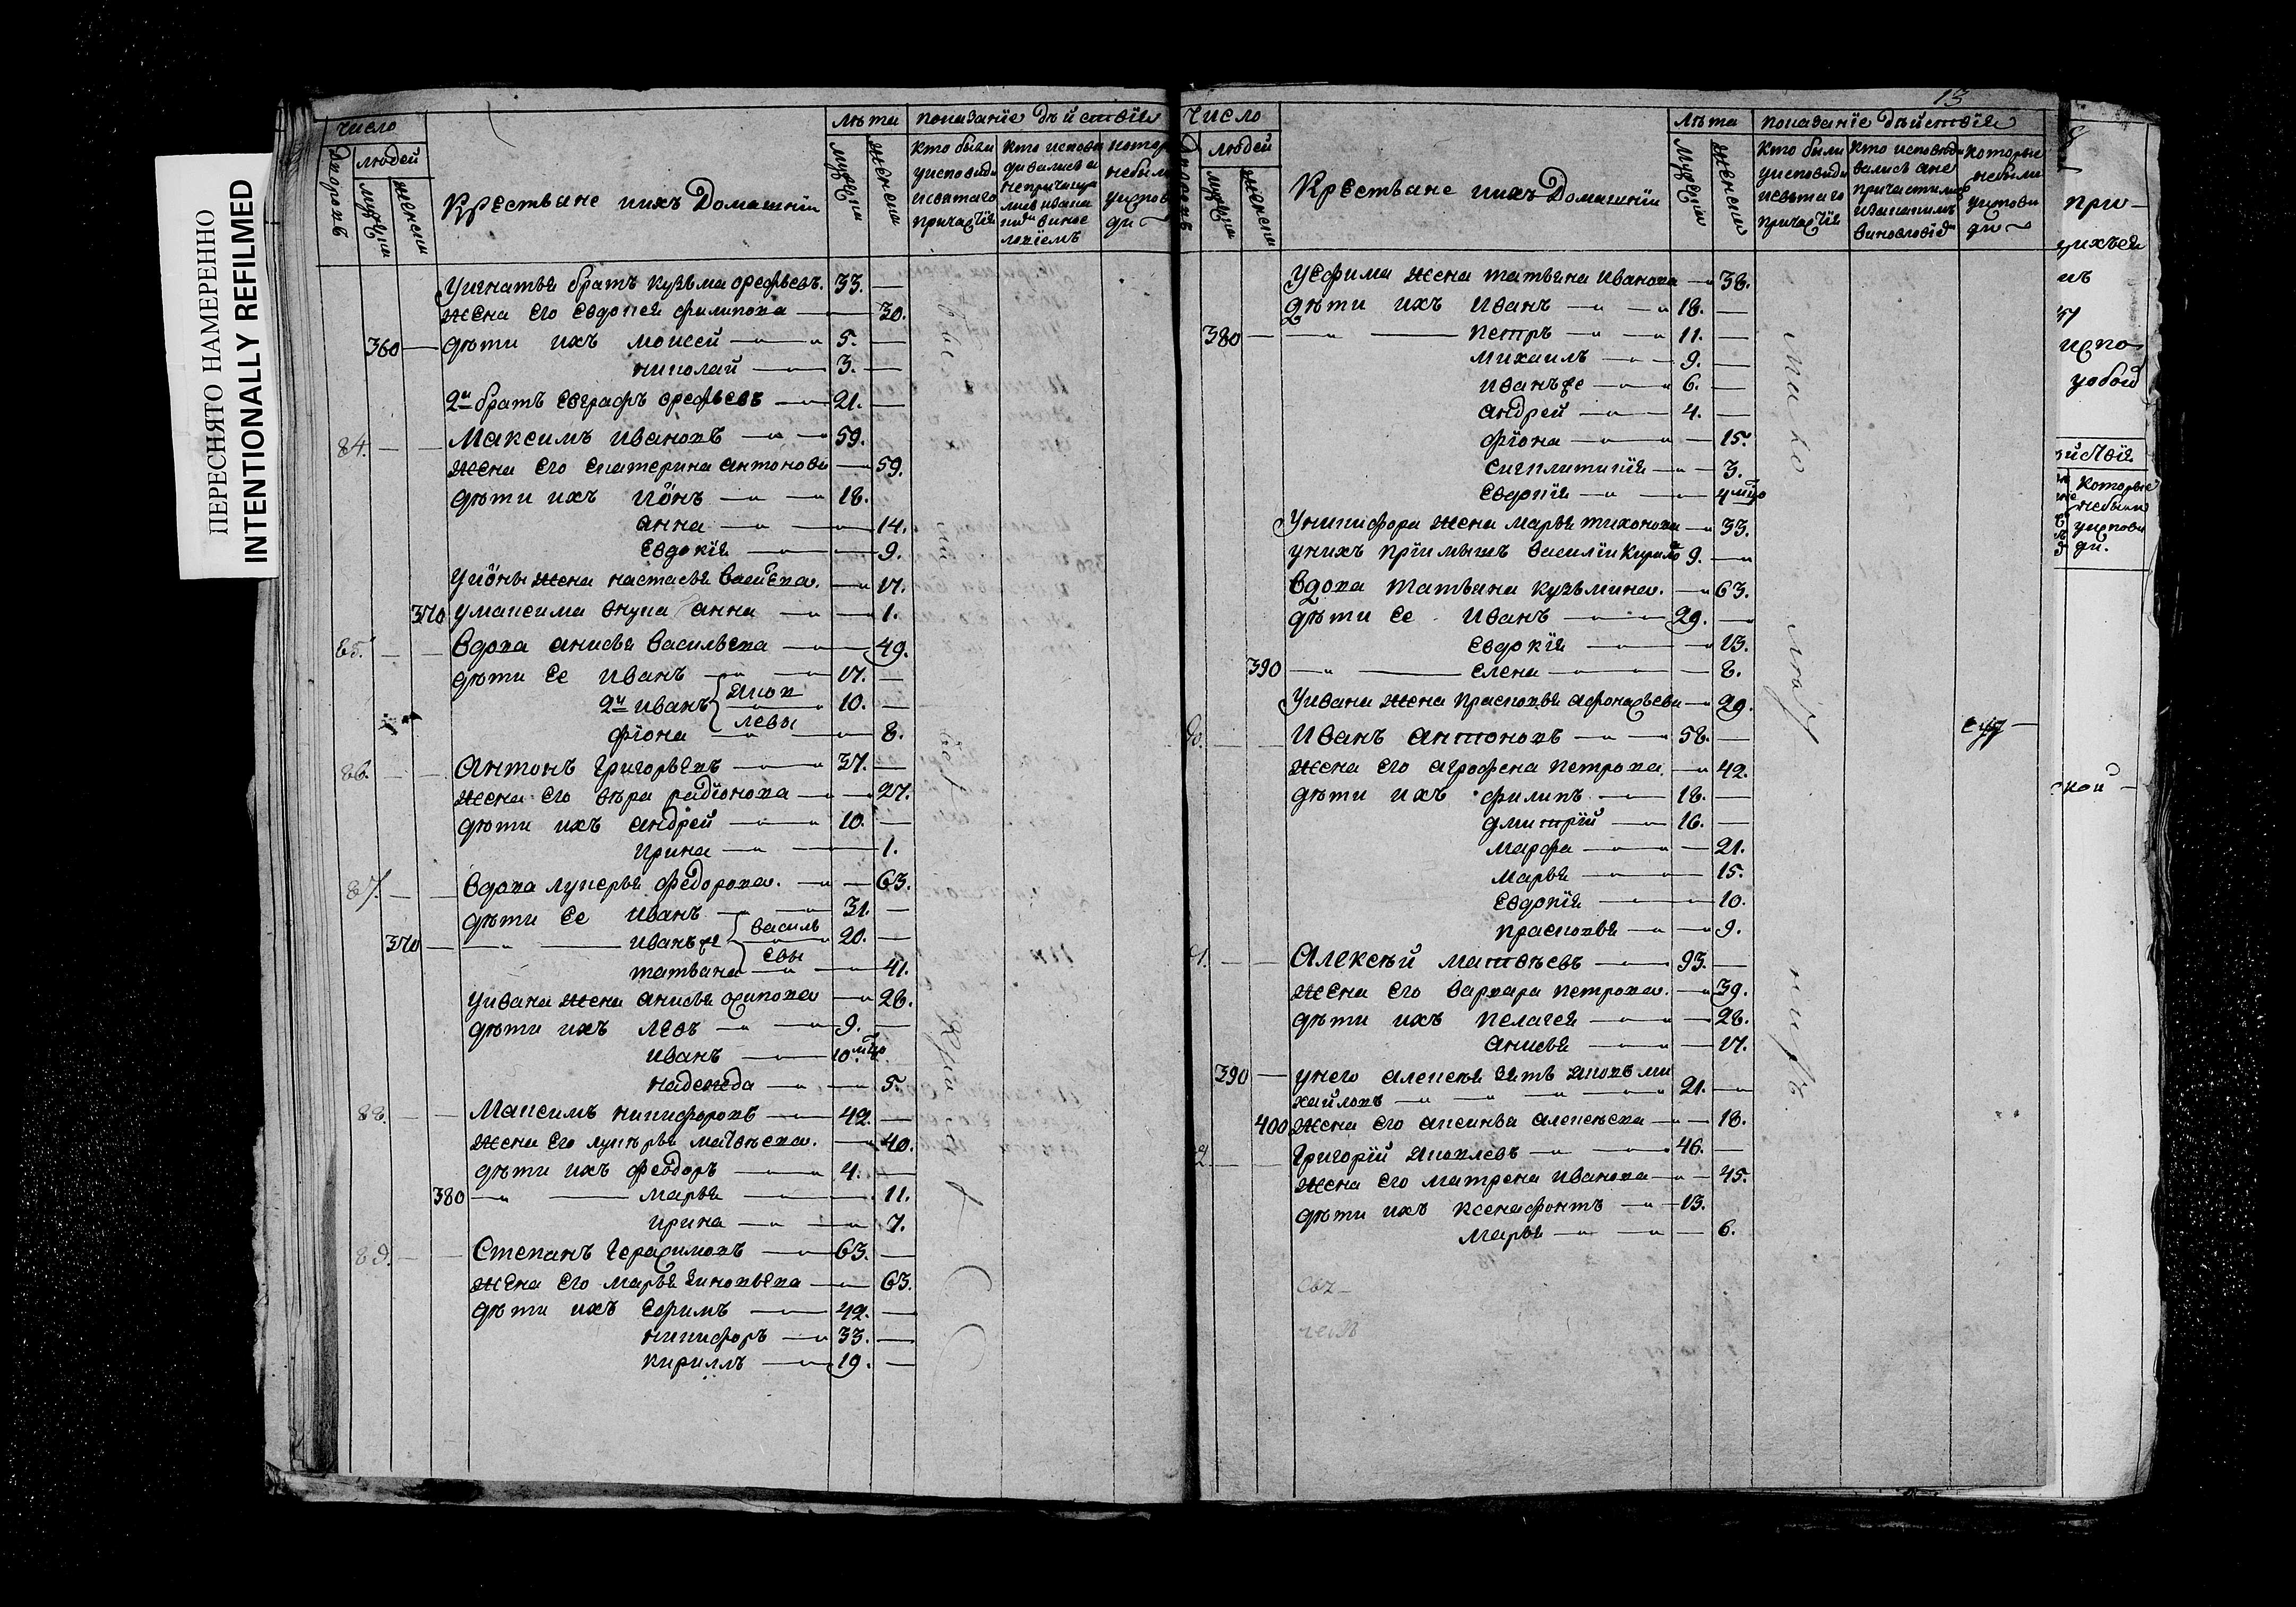 ПЕРЕСНЯТО НАМЕРЕННО
INTENTIONALLY REFILMED
число
людей
дворовъ
мужеска
женска
Крестьяне ихъ Домашнїи
лѣта
мужески
женски
показанїе дѣйствїя
кто были
уисповѣди
исвятаго
причастїя
Уигнатья братъ кузьма орефьевъ. 33.
жена его Евдокея филипова 30.
360 дѣти ихъ моисей 5.
николай 3.
2й братъ Евграфъ орефьевъ 21.
84. Максимъ ивановъ 59.
жена его екатерина антонова 59.
дѣти ихъ Иѡнъ 18.
анна 14.
Евдокїя 9.
Уиѡны жена настасья 17.
370 умаксима внука анна 1.
85. вдова анисья васильева 49.
дѣти ее иванъ 17.
2й иванъ яков левы 10.
фїона 8.
86. Антонъ Григорьевъ 37.
жена его вѣра радїонова 27.
дѣти ихъ андрей 10.
ирина 1.
87. вдова лукерья федорова. 63.
дѣти ее иванъ 31.
370 иванъ же василь евы 20.
татьяна 41.
уивана жена анисья осипова 26.
дѣти ихъ левъ 9.
иванъ 10 мцо
надежда 5.
88. Максимъ никифоровъ 42.
жена его лукерья матвѣева. 40.
дѣти ихъ феѡдоръ 4.
380 марья 11.
ирина 7.
89. Степанъ Герасимовъ 63.
жена его марья зиновьева 63.
дѣти ихъ ефимъ 42.
никифоръ 33.
кириллъ 19.
13
число
людей
мужеска
женска
Крестьяне ихъ Домашнїи
лѣта
мужески
женски
показанїе дѣйствїя
кто были
уисповѣди
исвятаго
причастїя
кто исповѣды
вались ане
причастились
которые
небыли
уисповѣ
ди
Уефима жена татьяна иванова 38.
дѣти ихъ иванъ 18.
380 петръ 11.
михаилъ 9.
иванъ же 6.
андрей 4.
фїона 15.
3.
Евдокїя 4 мцо
Уникифора жена марья тихонова 33.
унихъ прїимышъ василїи 9.
вдова татьяна кузьмина. 63.
дѣти ее иванъ 29.
евдокїя 13.
390 елена 8.
Уивана жена прасковья афонасьева 29.
90. Иванъ антоновъ 58.
жена его агрофена петрова. 42.
дѣти ихъ филипъ 18.
дмитрїй 16.
марфа 21.
марья 15.
Евдокїя 10.
прасковья 9.
91. Алексѣй матвѣевъ 93.
жена его варвара петрова. 39.
дѣти ихъ пелагея 28.
анисья 17.
390 унего алексѣя зять яковъ ми
хайловъ 21.
400 жена его аксинья алексѣева 18.
92. Григорїй яковлевъ 46.
жена его матрена иванова 45.
дѣти ихъ ксенофонтъ 13.
марья 6.
при
которые
небыли
уисповѣ
ди.